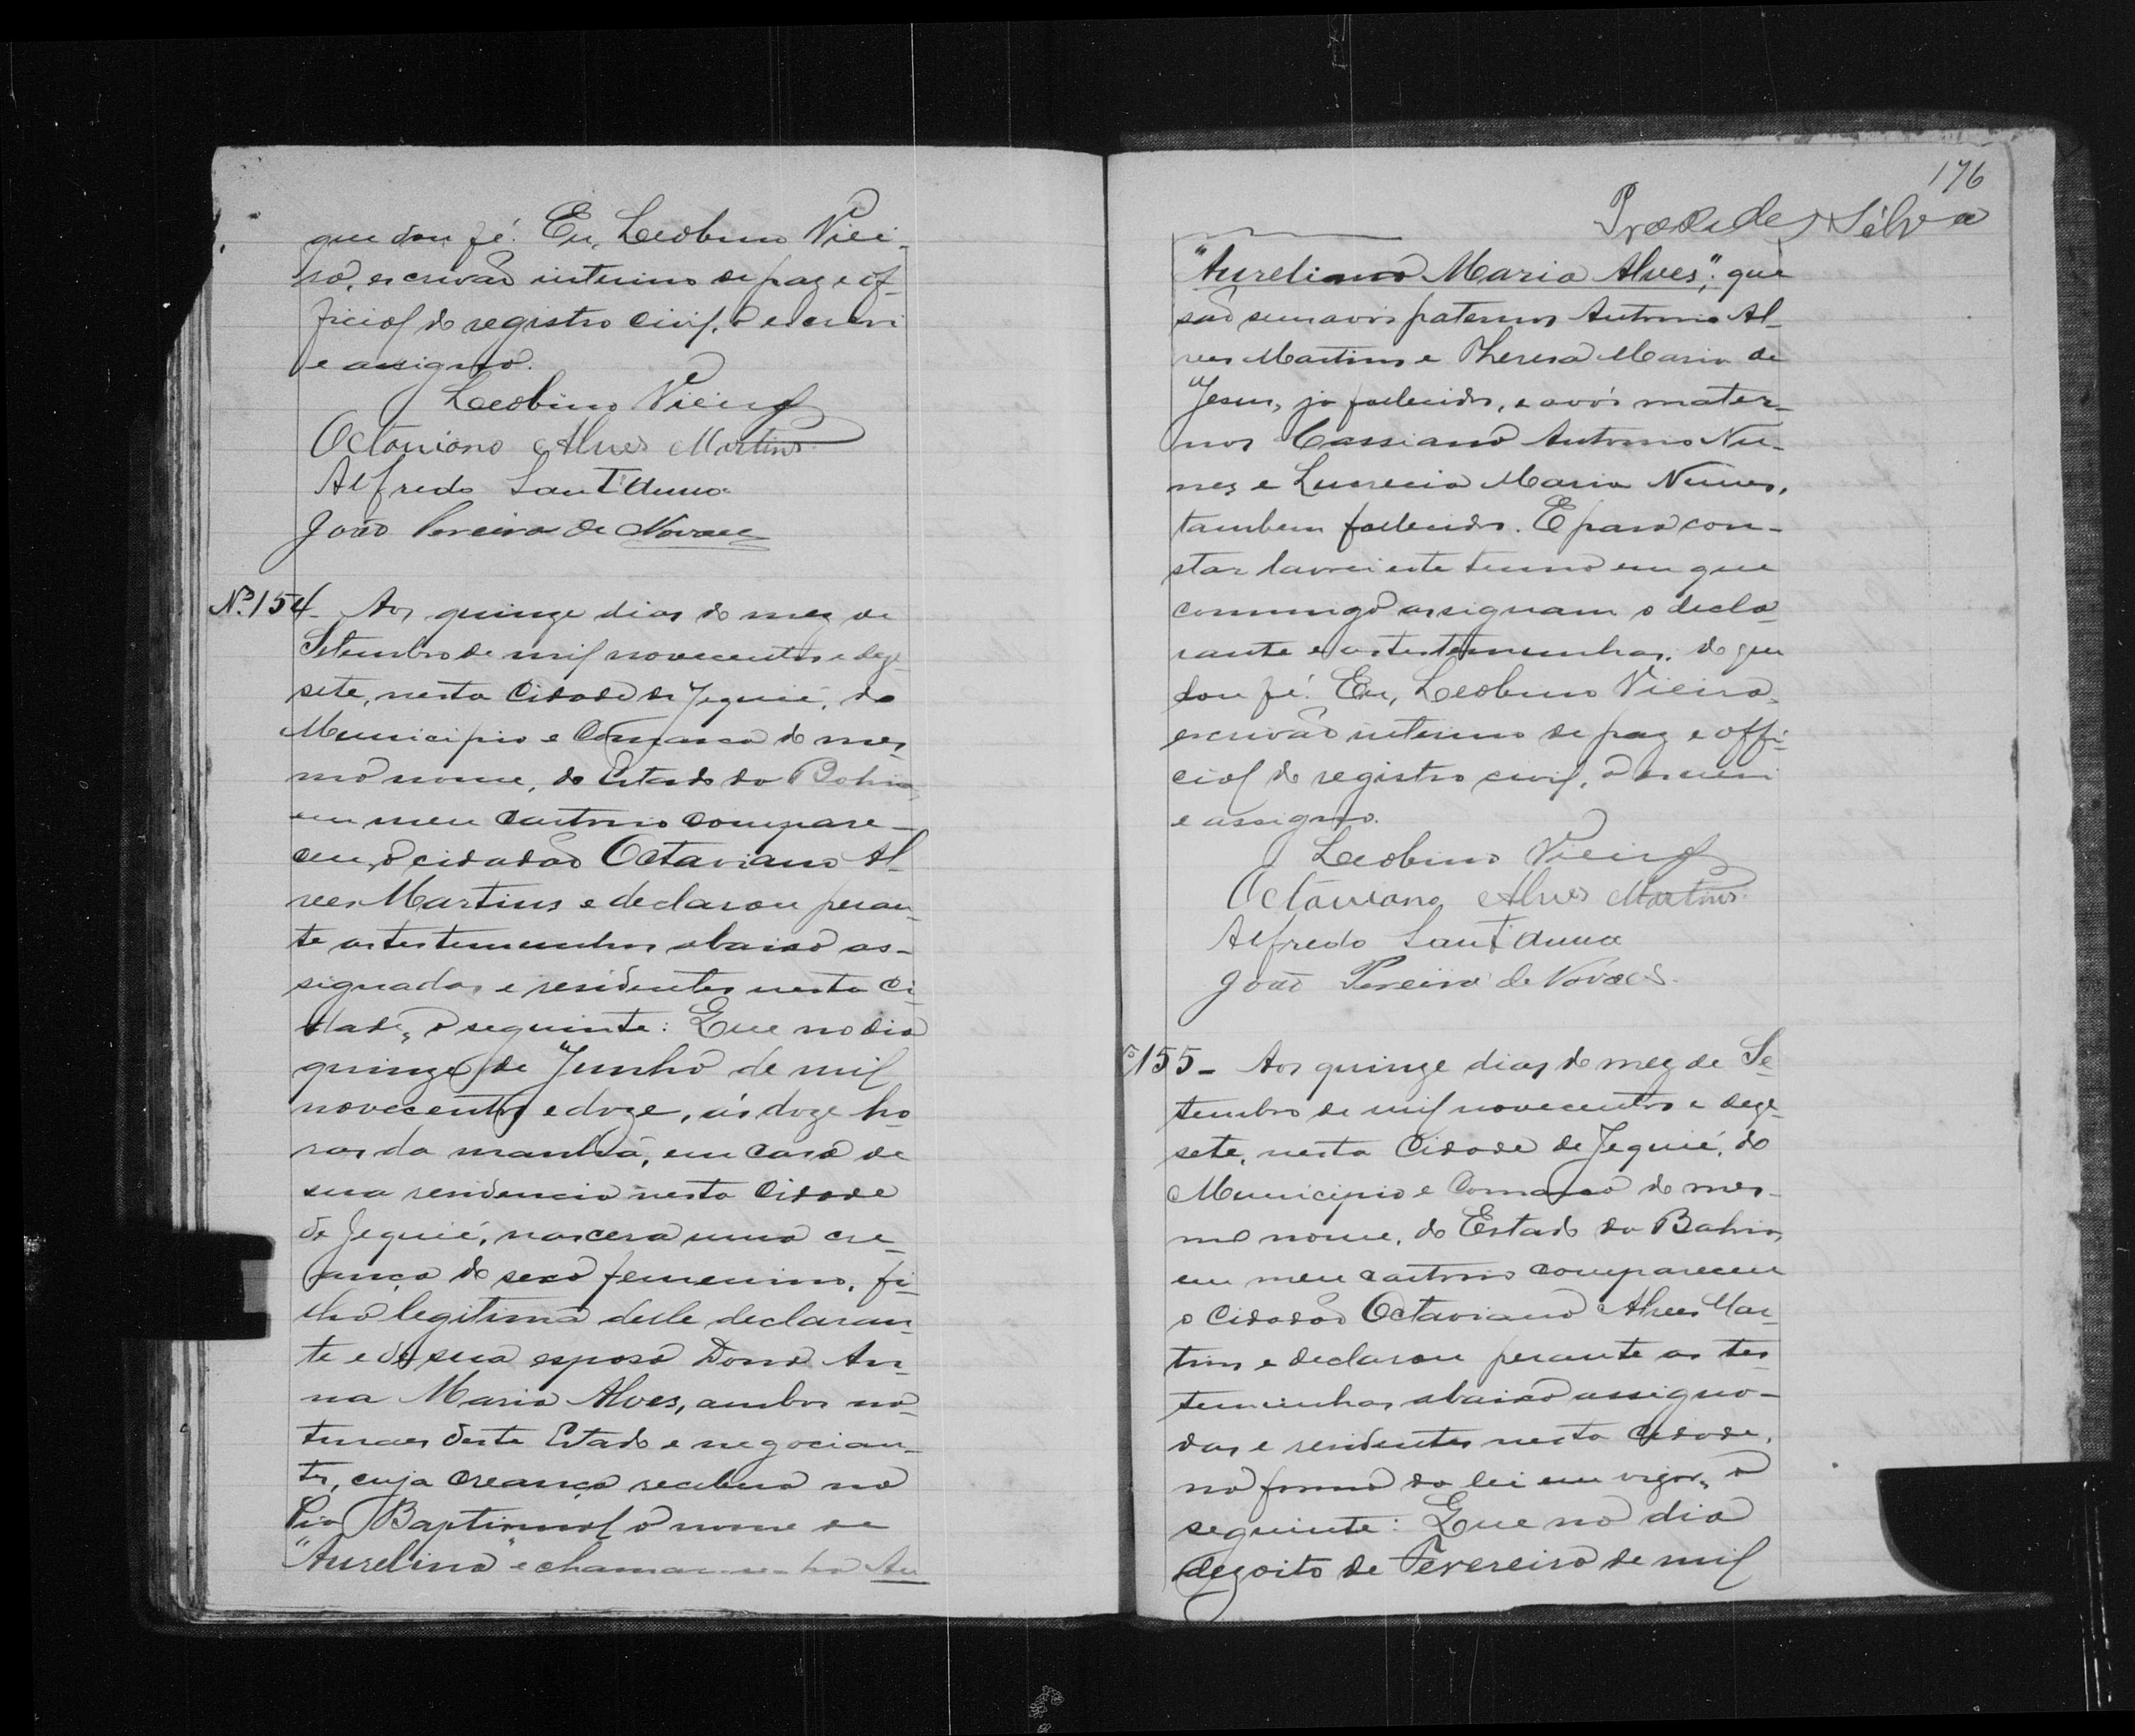 que dou fé. Eu, Leobino Viei-
ra, escrivão interino de paz e of-
ficial do registro civil, o escrevi
e assigno.
Leobino Vieira
Octaviano Alves Martins
Alfredo Sant'Anna
João Pereira de Novaes
Nº 154 - Aos quinze dias do mez de
Setembro de mil novecentos e deze-
sete, nesta Cidade de Jequié, do
Municipio e Comarca do mes-
mo nome, do Estado da Bahia,
em meu cartorio compare-
ceu o cidadão Octaviano Al-
ves Martins e declarou peran-
te as testemunhas abaixo as-
signadas e residentes nesta Ci-
dade, o seguinte: Que no dia
quinze de Junho de mil
novecentos e doze, ás doze ho-
ras da manhã, em casa de
sua residencia nesta Cidade
de Jequié, nascera uma cre-
ança do sexo femenino, fi-
lha legitima delle declaran-
te e de sua esposa Dona An-
na Maria Alves, ambos na-
turaes deste Estado e negocian-
tes, cuja creança recebeu na
Pia Baptismal o nome de
"Aurelina" e chamar-se-ha Au
176
Silva
"Aureliana Maria Alves"; que
são seus avós paternos Antonio Al-
ves Martins e Theresa Maria de
Jesus, já fallecidos, e avós mater-
nos Cassiano Antonio Nu-
nes e Lucrecia Maria Nunes,
tambem fallecidos. E para con-
star lavrei este termo em que
commigo assignam o decla-
rante e as testemunhas, do que
dou fé. Eu, Leobino Vieira,
escrivão interino de paz e offi-
cial do registro civil, o escrevi
e assigno.
Leobino Vieira
Octaviano Alves Martins
Alfredo Sant'Anna
João Pereira de Novaes
155 - Aos quinze dias do mez de Se-
tembro de mil novecentos e deze-
sete, nesta Cidade de Jequié, do
Municipio e Comarca do mes-
mo nome, do Estado da Bahia,
em meu cartorio compareceu
o Cidadão Octaviano Alves Mar-
tins e declarou perante as tes-
temunhas abaixo assigna-
das e residentes nesta Cidade,
na forma da lei em vigor, o
seguinte: Que no dia
dezoito de Fevereiro de mil